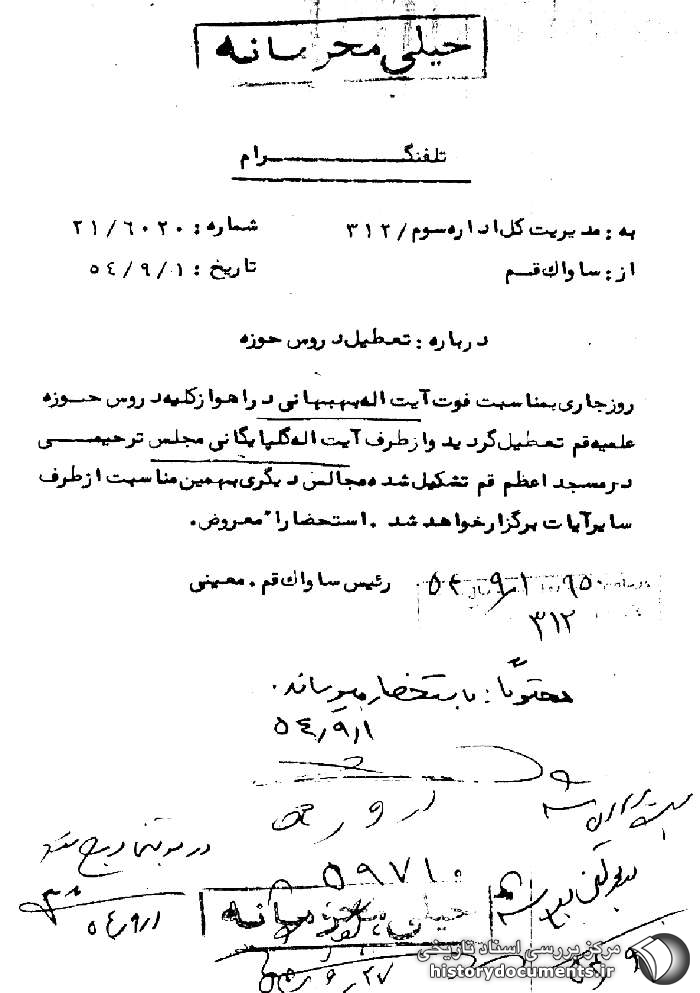 خیلی محرمانه
تلفنگرام
به: مدیریت کل اداره سوم/۳۱۲
شماره: ۲۱/۶۰۲۰
از: ساواک قم
تاریخ: ۵۴/۹/۱
درباره: تعطیل دروس حوزه
روز جاری بمناسبت فوت آیت اله بهبهانی در اهواز کلیه دروس حوزه
علمیه قم تعطیل گردید و از طرف آیت اله گلپایگانی مجلس ترحیمی
در مسجد اعظم قم تشکیل شده مجالس دیگری بهمین مناسبت از طرف
سایر آیات برگزار خواهد شد. استحضاراً معروض.
رئیس ساواک قم. معینی
۳۱۲
محتویاً: باستحضار میرساند.
۵۴/۹/۱
۵۹۷۱۰
۵۴/۹/۱
خیلی محرمانه
مرکز بررسی اسناد تاریخی
historydocuments.ir